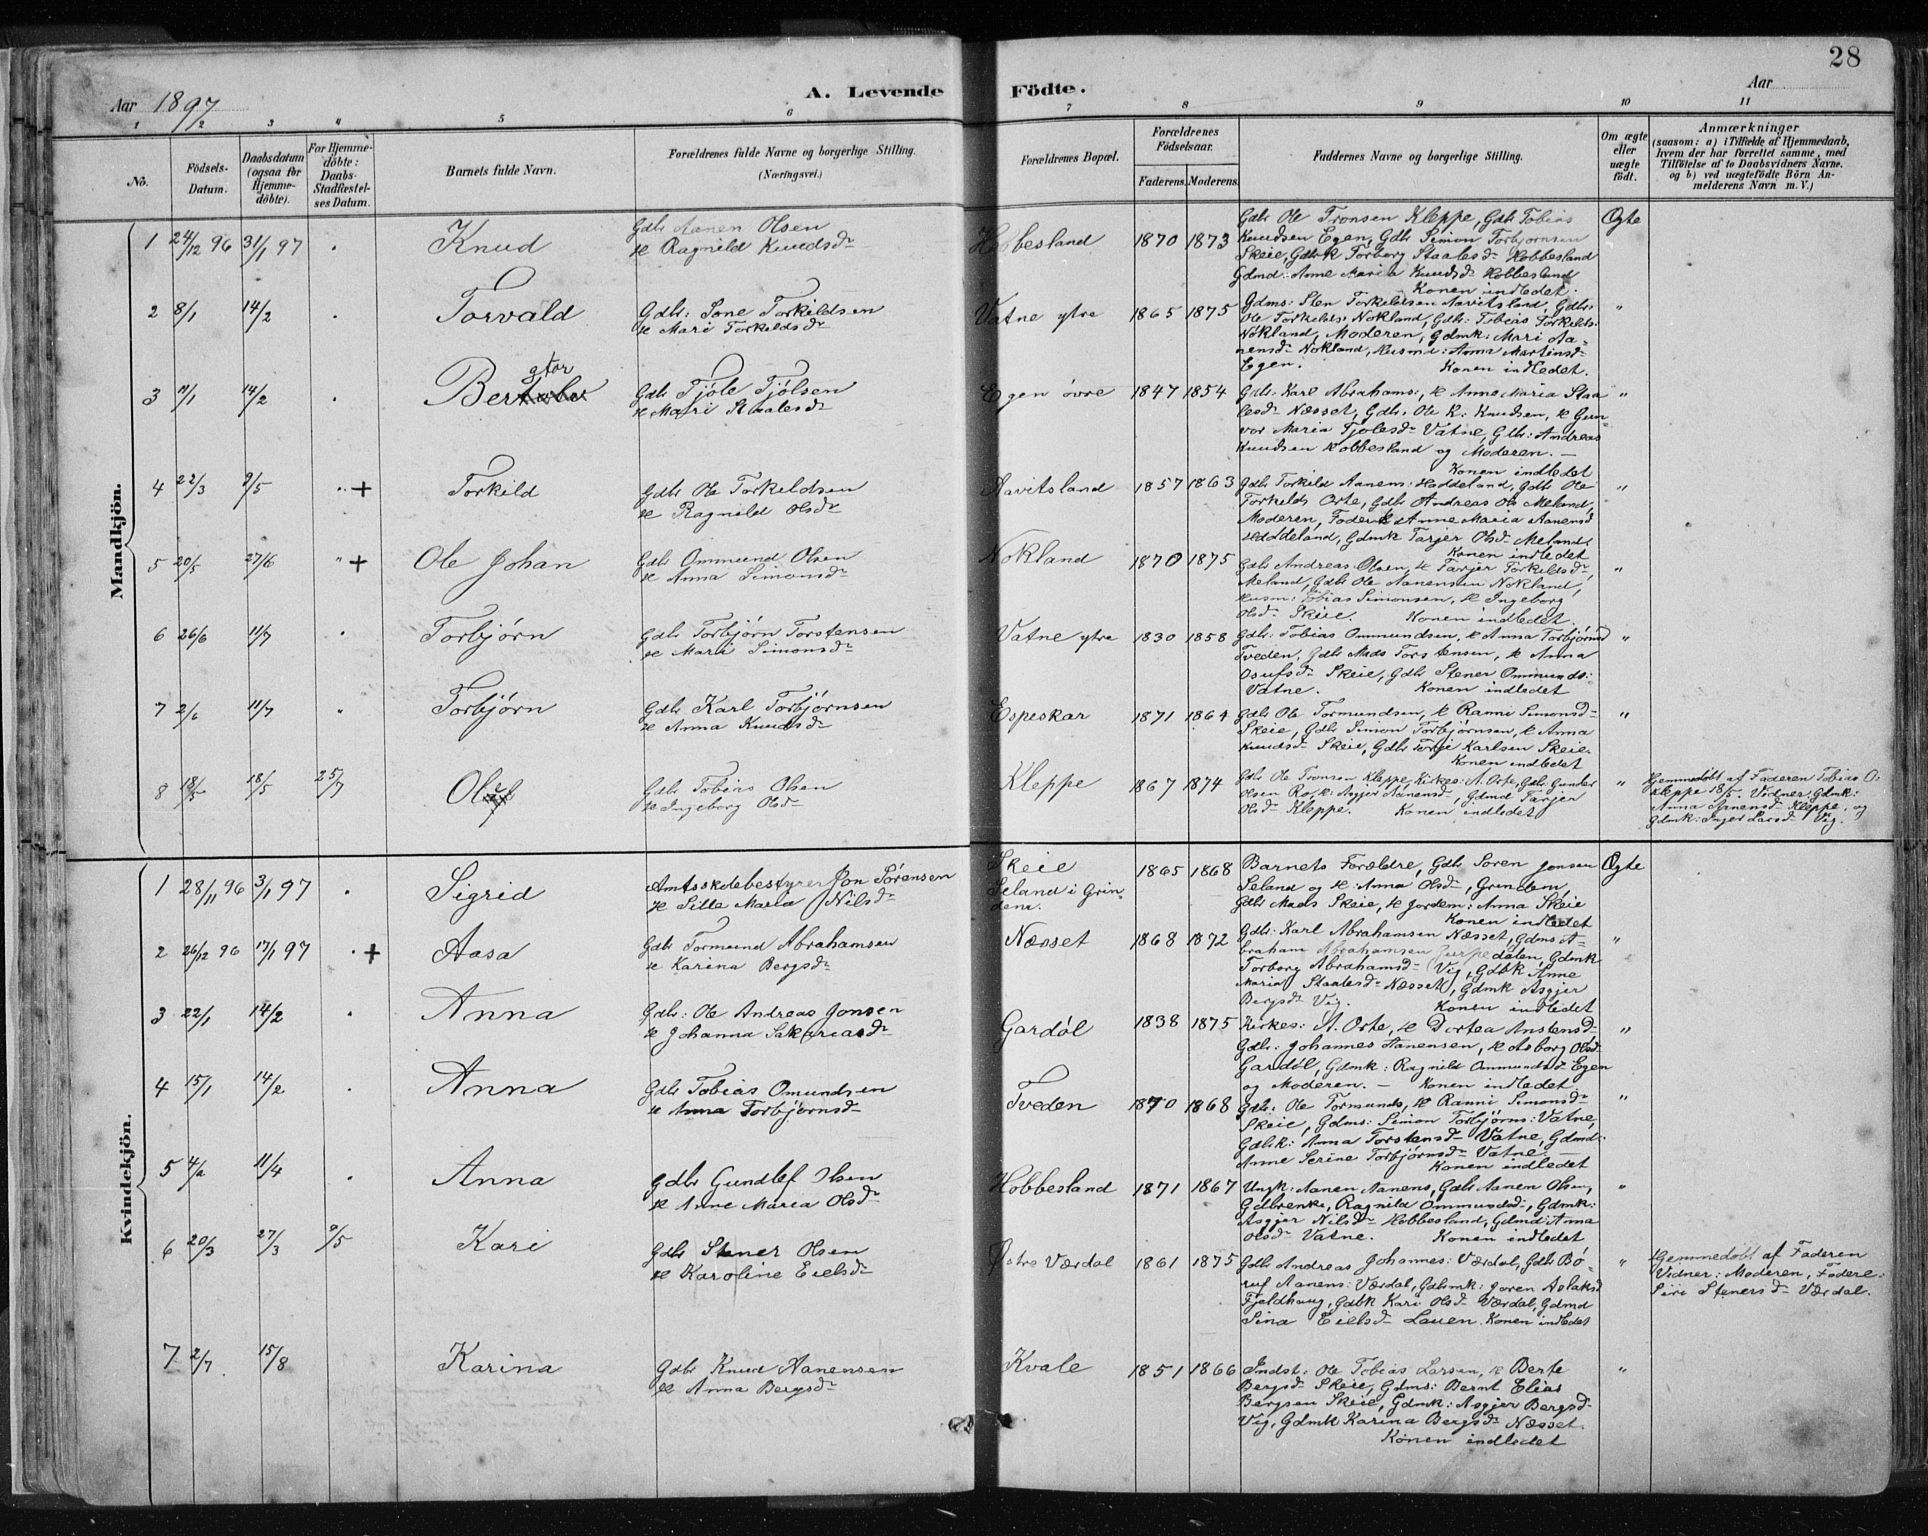 28
Aar 1897
A. Levende Födte.
Aar
1 2 3 4 5 6 7 8 9 10 11
No.
Födsels-Datum.
Daabsdatum (ogsaa for Hjemme-döbte).
For Hjemme-döbte: Daabs-Stadfæstel-ses Datum.
Barnets fulde Navn.
Forældrenes fulde Navne og borgerlige Stilling.
(Næringsvei.)
Forældrenes Bopæl.
Forældrenes Födselsaar.
Faderens. Moderens.
Faddernes Navne og borgerlige Stilling.
Om ægte eller uægte födt.
Anmærkninger
(saasom: a) i Tilfælde af Hjemmedaab,
hvem der har forrettet samme, med
Tilföielse af to Daabsvidners Navne.
og b) ved uægtefödte Börn An-
melderens Navn m. V.)
Mandkjön.
1 24/12 96 31/1 97 Knud
Gdbr Aanen Olsen
H Ragnild Knudsdr
Hobbesland 1870 1873
Gdbr Ole Tronsen Kleppe, Gdbr Tobias
Knudsen Egen, Gdbr Simon Torbjornsen
Skeie, Gdbrk Torborg Staalesdr Hobbesland
Gdmd: Anne Maria Knudsdr Hobbesland
Konen indledet.
Ægte
2 8/1 14/2 Torvald
Gdbr: Sone Torkildsen
H Mari Torkeldsdr
Vatne ytre 1865 1875
Gdms: Sten Torkeldsen Aavitsland, Gdbr:
Ole Torkelds: Nokland, Gdbr: Tobias Torkelds:
Nokland, Moderen, Gdmk: Mari Aa-
nensdr Nokland, Husmd: Anna Martinsdr
Egen. Konen indledet.
"
3 11/1 14/2 Berstor
Gdbr Tjöle Tjölsen
H Mari Staalesdr
Egen övre 1847 1854
Gdbr: Karl Abrahams:, H Anne Maria Staa
lesdr Næsset, Gdbr. Ole K: Knudsen, H Gun-
vor Maria Tjolesdr Vatne, Gbr: Andreas
Knudsen Hobbesland og Moderen. —
Konen indledet
"
4 22/3 9/5 + Torkild
Gdbr Ole Torkildsen
H Ragnild Olsdr
Aavitsland 1857 1863
Gdbr Torkild Aanens: Haddeland, Gdbr Ole
Torkilds Orte, Gdbr Andreas Ols Meland,
Moderen, Anne Maria Aanensd
Haddeland, Gdmk Tarjer Olsd Meland.
Konen indledet
"
5 20/5 27/6 " + Ole Johan
Gdbr Ommund Olsen
H Anna Simonsdr
Nokland 1870 1875
Gdbr Andreas Olsen, H Tarjer Torkeldsdr,
Meland, Gdbr Ole Aanensen Nokland,
Husm: Tobias Simonsen, H Ingeborg
Olsdr Skeie. Konen indledet.
"
6 26/6 11/7 Torbjørn
Gdbr Torbjørn Torstensen
H Mari Simonsdr
Vatne ytre 1830 1858
Gdbr: Tobias Ommundsen, H Anna Torbjørnsd
Tveden, Gdbr Mads Torstensen, H Anna
Osufsdr Skeie, Gdbr Stener Ommunds:
Vatne. Konen indledet
"
7 2/6 11/7 " Torbjørn
Gdbr Karl Torbjørnsen
H Anna Knudsdr
Espeskar 1871 1864
Gdbr Ole Tormundsen, H Ranni Simonsdr
Skeie, Gdbr Simon Torbjørnsen, H Anna
Knudsdr Skeie, Gdbr Torje Karlsen Skeie.
Konen indledet
"
8 18/5 18/5 25/7
Gdbr Tobias Olsen
H Ingeborg Olsdr
Kleppe 1867 1874
Gdbr Ole Tronsen Kleppe, Kirkes: A. Orte, Gdbr Gunder
Olsen Ro, K: Asgjer Aanensdr, Gdmd Tarjer
Olsdr Kleppe. Konen indledet
"
Hjemmedøbt af Faderen Tobias O.
Kleppe 18/5. Vidner Gdmk:
Anna Aanensdr Kleppe, og
Gdmk: Inger Larsdr Vig.
Kvindekjön.
1 28/11 96 3/1 97 Sigrid
Amtsskolebestyrer Jon Sørensen
H Sille Maria Nilsdr
Skeie
Seland i Grin
dem. 1865 1868
Barnets Forældre, Gdbr Soren Jonsen
Seland og H: Anna Olsdr, Grindem,
Gdbr Mads Skeie, H Jordem: Anna Skeie
Konen indledet
Ægte
2 26/12 96 17/1 97 + Aasa
Gdbr Tormund Abrahamsen
H Karina Bergsdr
Næsset 1868 1872
Gdbr: Karl Abrahamsen Næsset, Gdms A-
braham Abrahamsen Jurpedalen, Gdmk
Torborg Abrahamsdr Vig, Gdbk Anne
Maria Staalesdr Næsset, Gdmk Asgjer
Bergsdr Vig. Konen indledet
"
3 22/1 14/2 Anna
Gdbr: Ole Andreas Jonsen
H Johanna Sakariasdr
Gardøl 1838 1875
Kirkes: A. Orte, H Dortea Anstensdr
Gdbr: Johannes Aanensen, H Aasborg Olsdr
Gardøl, Gdmk: Ragnild Ommundsdr Egen
og Moderen. — Konen indledet.
"
4 15/1 14/2 Anna
Gdbr Tobias Omundsen
H Anna Torbjørnsdr
Tveden 1870 1868
Gdbr: Ole Tormunds, H Ranni Simonsdr
Skeie, Gdms: Simon Torbjørns: Vatne,
Gdbk: Anna Torstensdr Vatne, Gdmd:
Anne Serine Torbjørnsdr Vatne. —
Konen indledet
"
5 4/2 11/4 Anna
Gdbr Gundlef Olsen
H Anne Maria Olsdr
Hobbesland 1871 1867
Ungk: Aanen Aanens, Gdbr Aanen Olsen,
Gdbrenke, Ragnild Ommundsdr, Gdmk:
Asgjer Nilsdr Hobbesland, Gdmd: Anna
Olsdr Vatne. Konen indledet
"
6 20/3 27/3 9/5 Kari
Gdbr Stener Olsen
H Karoline Eielsdr
Østre Værdal 1861 1875
Gdbr Andreas Johannes: Værdal, Gdbr Bø-
ruf Aanens: Værdal, Gdbmk: Joren Aslaksd
Fjeldhaug, Gdbk Kari Olsdr Værdal, Gdmd
Sina Eielsdr Lauen. Konen indledet
"
Hjemmedøbt af Faderen
Vidner: Moderen,
Siri Stenersdr Værdal.
7 2/7 15/8 Karina
Gdbr Knud Aanensen
H Anna Bergsdr
Kvale 1851 1866
Indst: Ole Tobias Larsen, H Berte
Bergsdr Skeie, Gdms: Bernt Elias
Bergsen Skeie, Gdmk: Asgjer Bergsdr
Vig, Gdmk Karina Bergsdr Næsset.
Konen indledet
"